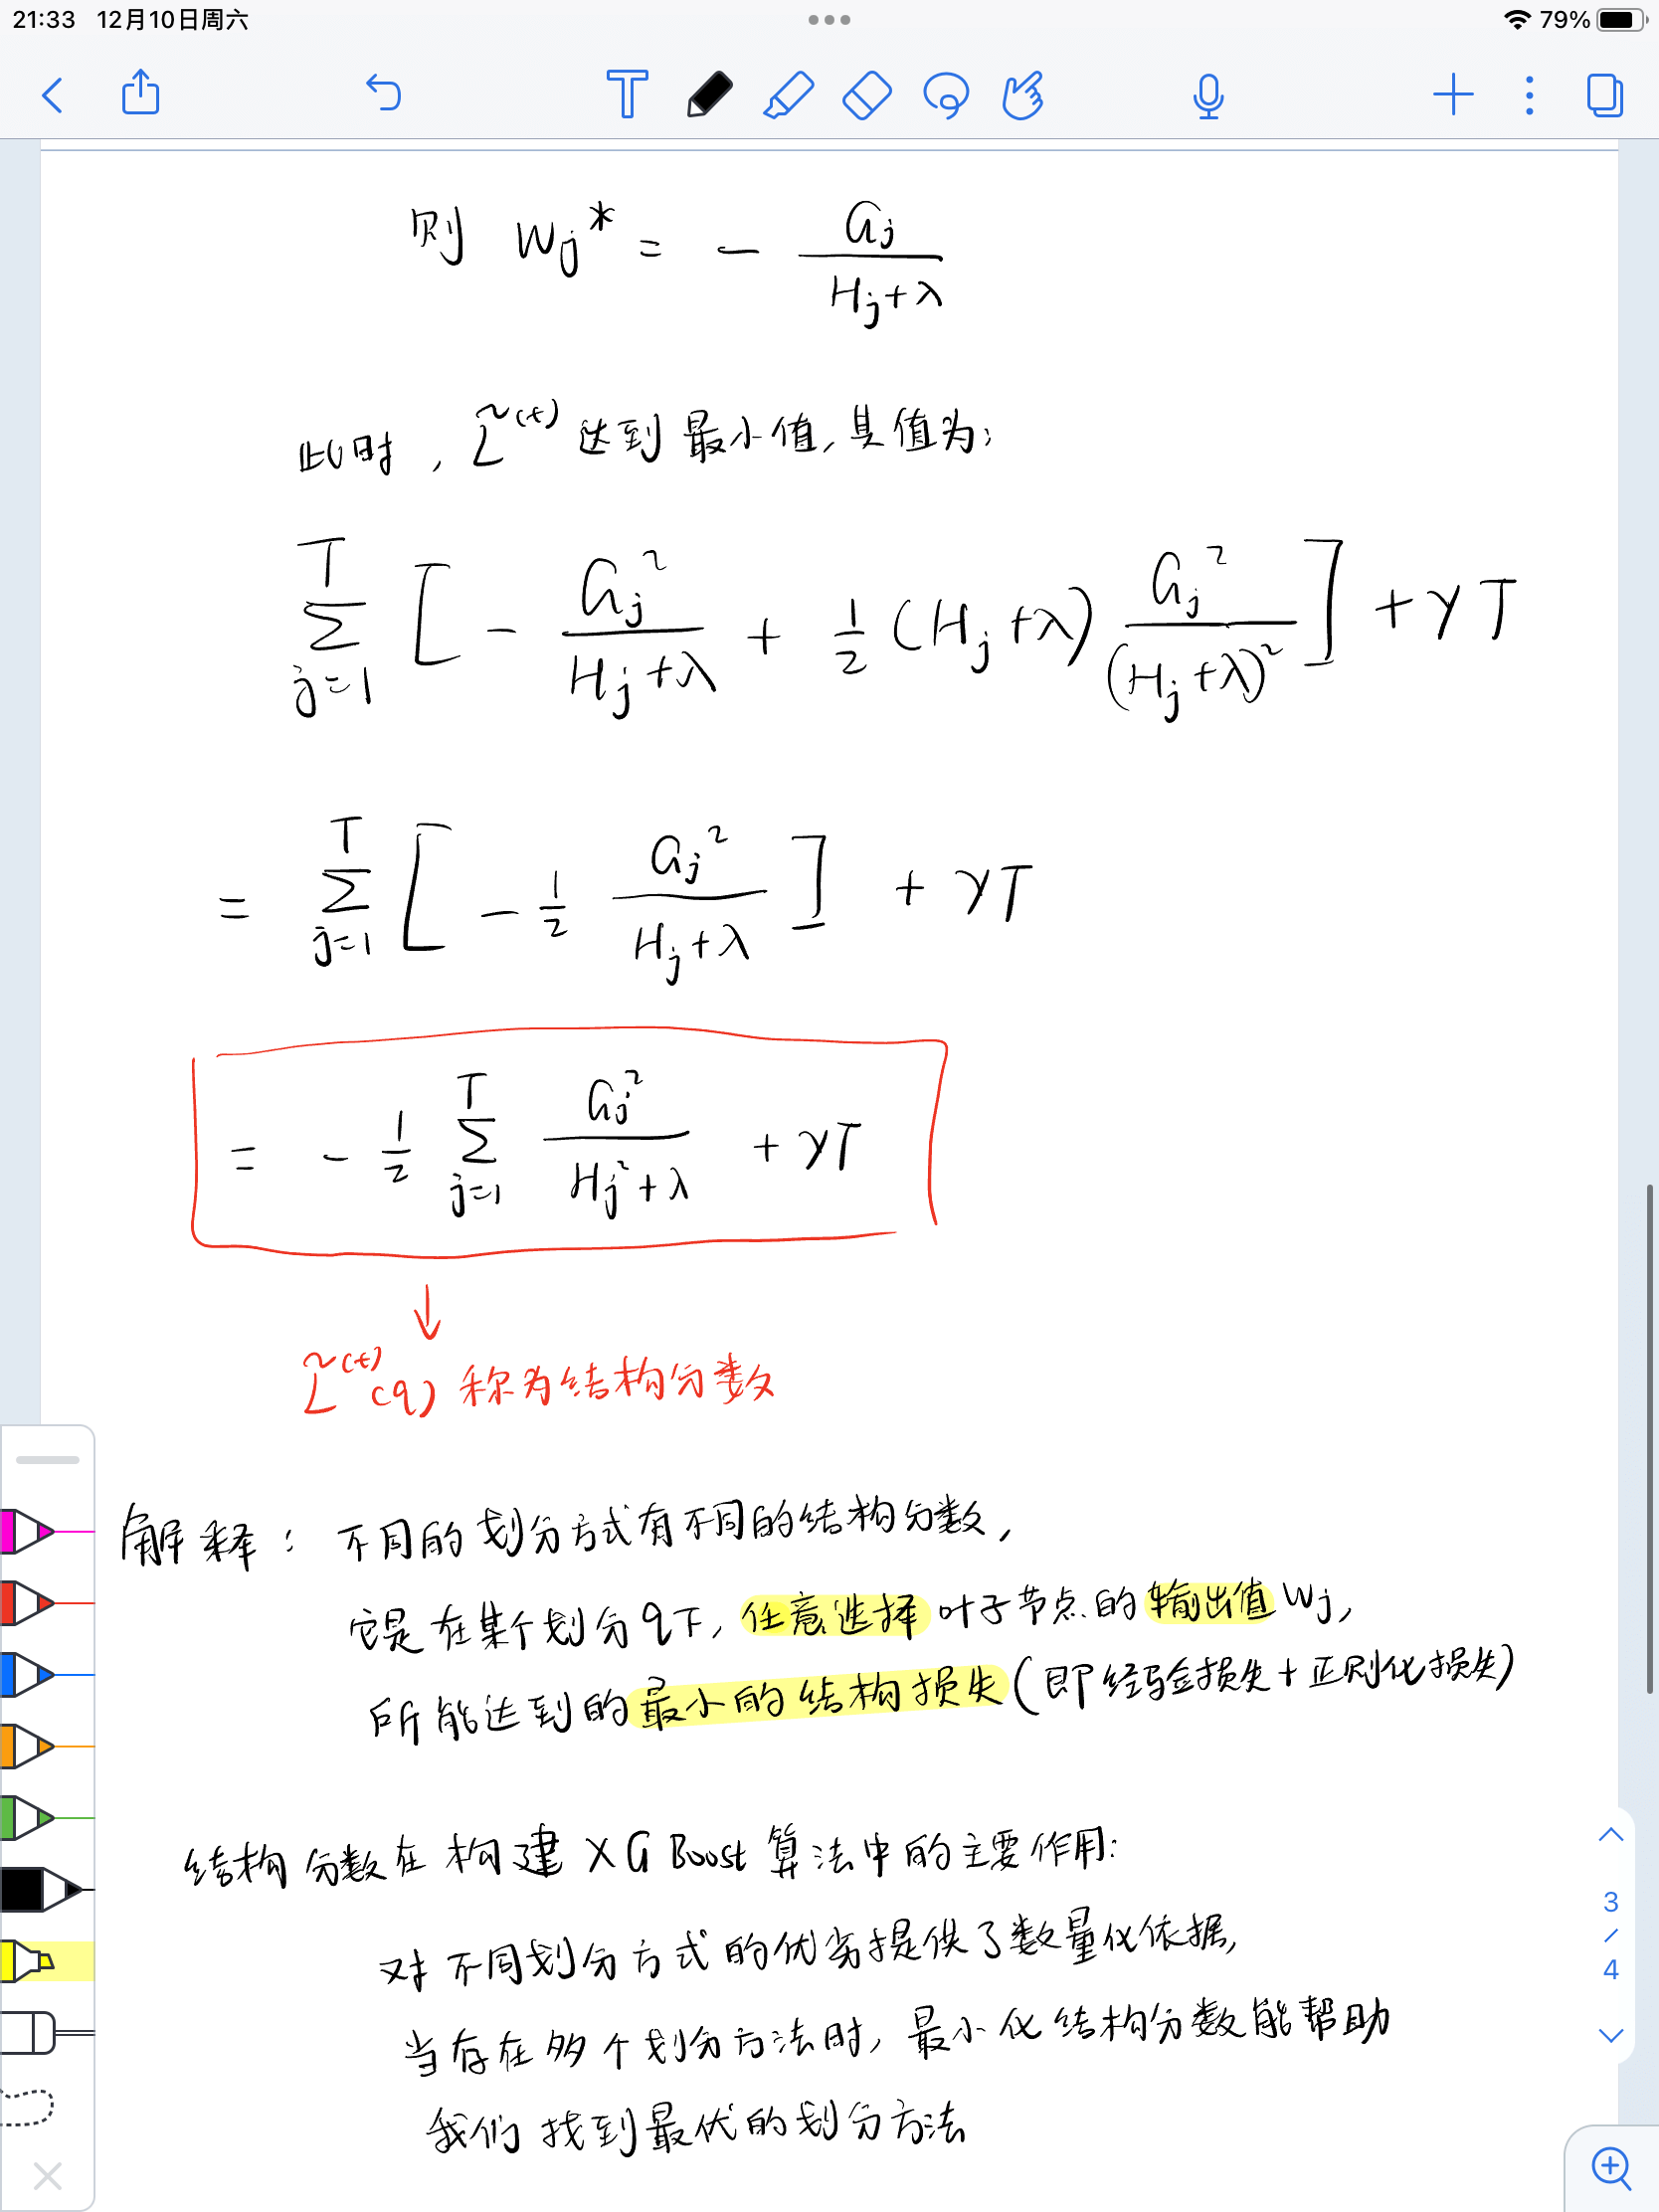 21:33 12月10日周六 79%
则 Wj* = - Gj / (Hj+λ)
此时, L̃^(t) 达到最小值, 其值为:
∑_{j=1}^{T} [ - Gj² / (Hj+λ) + 1/2 (Hj+λ) Gj² / (Hj+λ)² ] + γT
= ∑_{j=1}^{T} [ - 1/2 Gj² / (Hj+λ) ] + γT
= - 1/2 ∑_{j=1}^{T} Gj² / (Hj²+λ) + γT
L̃^(t)(q) 称为结构分数
解释: 不同的划分方式有不同的结构分数,
它是在某个划分q下, 任意选择叶子节点的输出值Wj,
所能达到的最小的结构损失(即经验损失+正则化损失)
结构分数在构建XGBoost算法中的主要作用:
对不同划分方式的优劣提供了数量化依据,
当存在多个划分方法时, 最小化结构分数能帮助
我们找到最优的划分方法
3
/
4